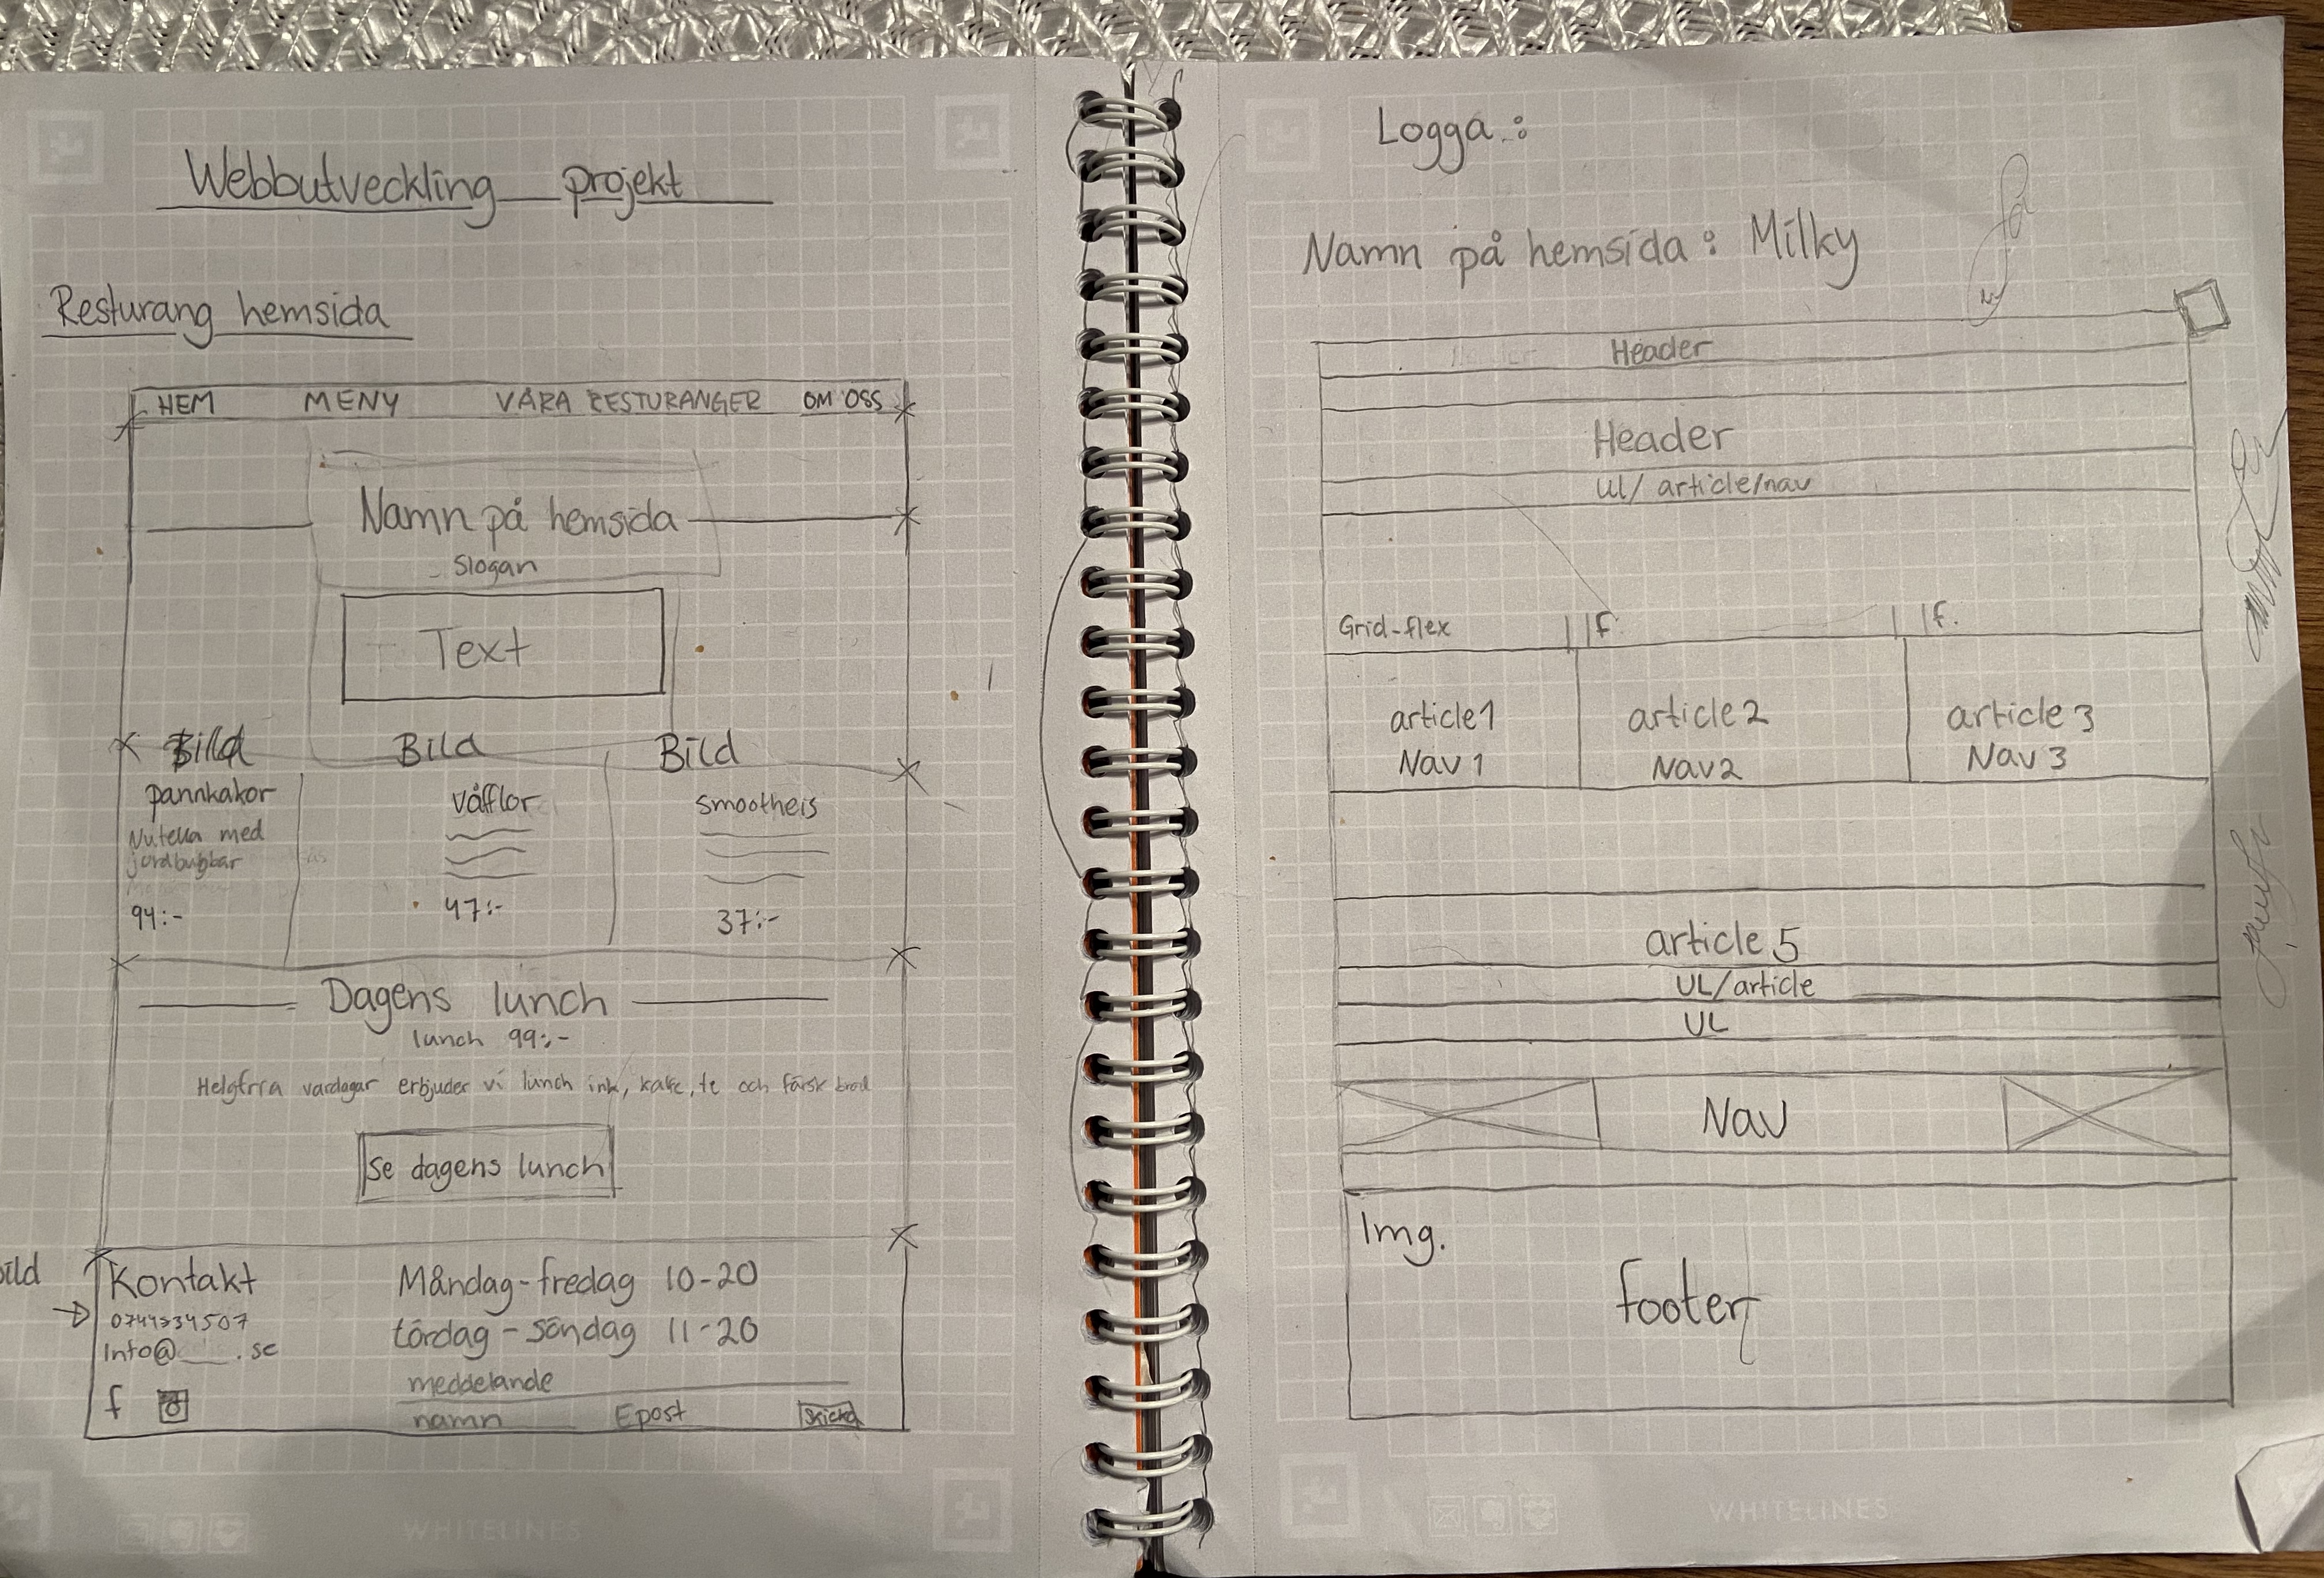 Webbutveckling projekt
Resturang hemsida
HEM MENY VÅRA RESTURANGER OM OSS
Namn på hemsida
Slogan
Text
Bild Bild Bild
pannkakor våfflor smootheis
Nutella med
94:- 47:- 37:-
Dagens lunch
lunch 99:-
Helgfria vardagar erbjuder vi lunch ink, kaffe, te och färsk bröd
Se dagens lunch
Kontakt
Måndag-fredag 10-20
Lördag-Söndag 11-20
Info@___.se
meddelande
f
namn Epost Skicka
WHITELINES
Logga:
Namn på hemsida: Milky
Header
Header
ul/ article/nav
Grid-flex f. f.
article1 article2 article 3
Nav 1 Nav2 Nav 3
article 5
UL/article
UL
Nav
Img.
footer
WHITELINES